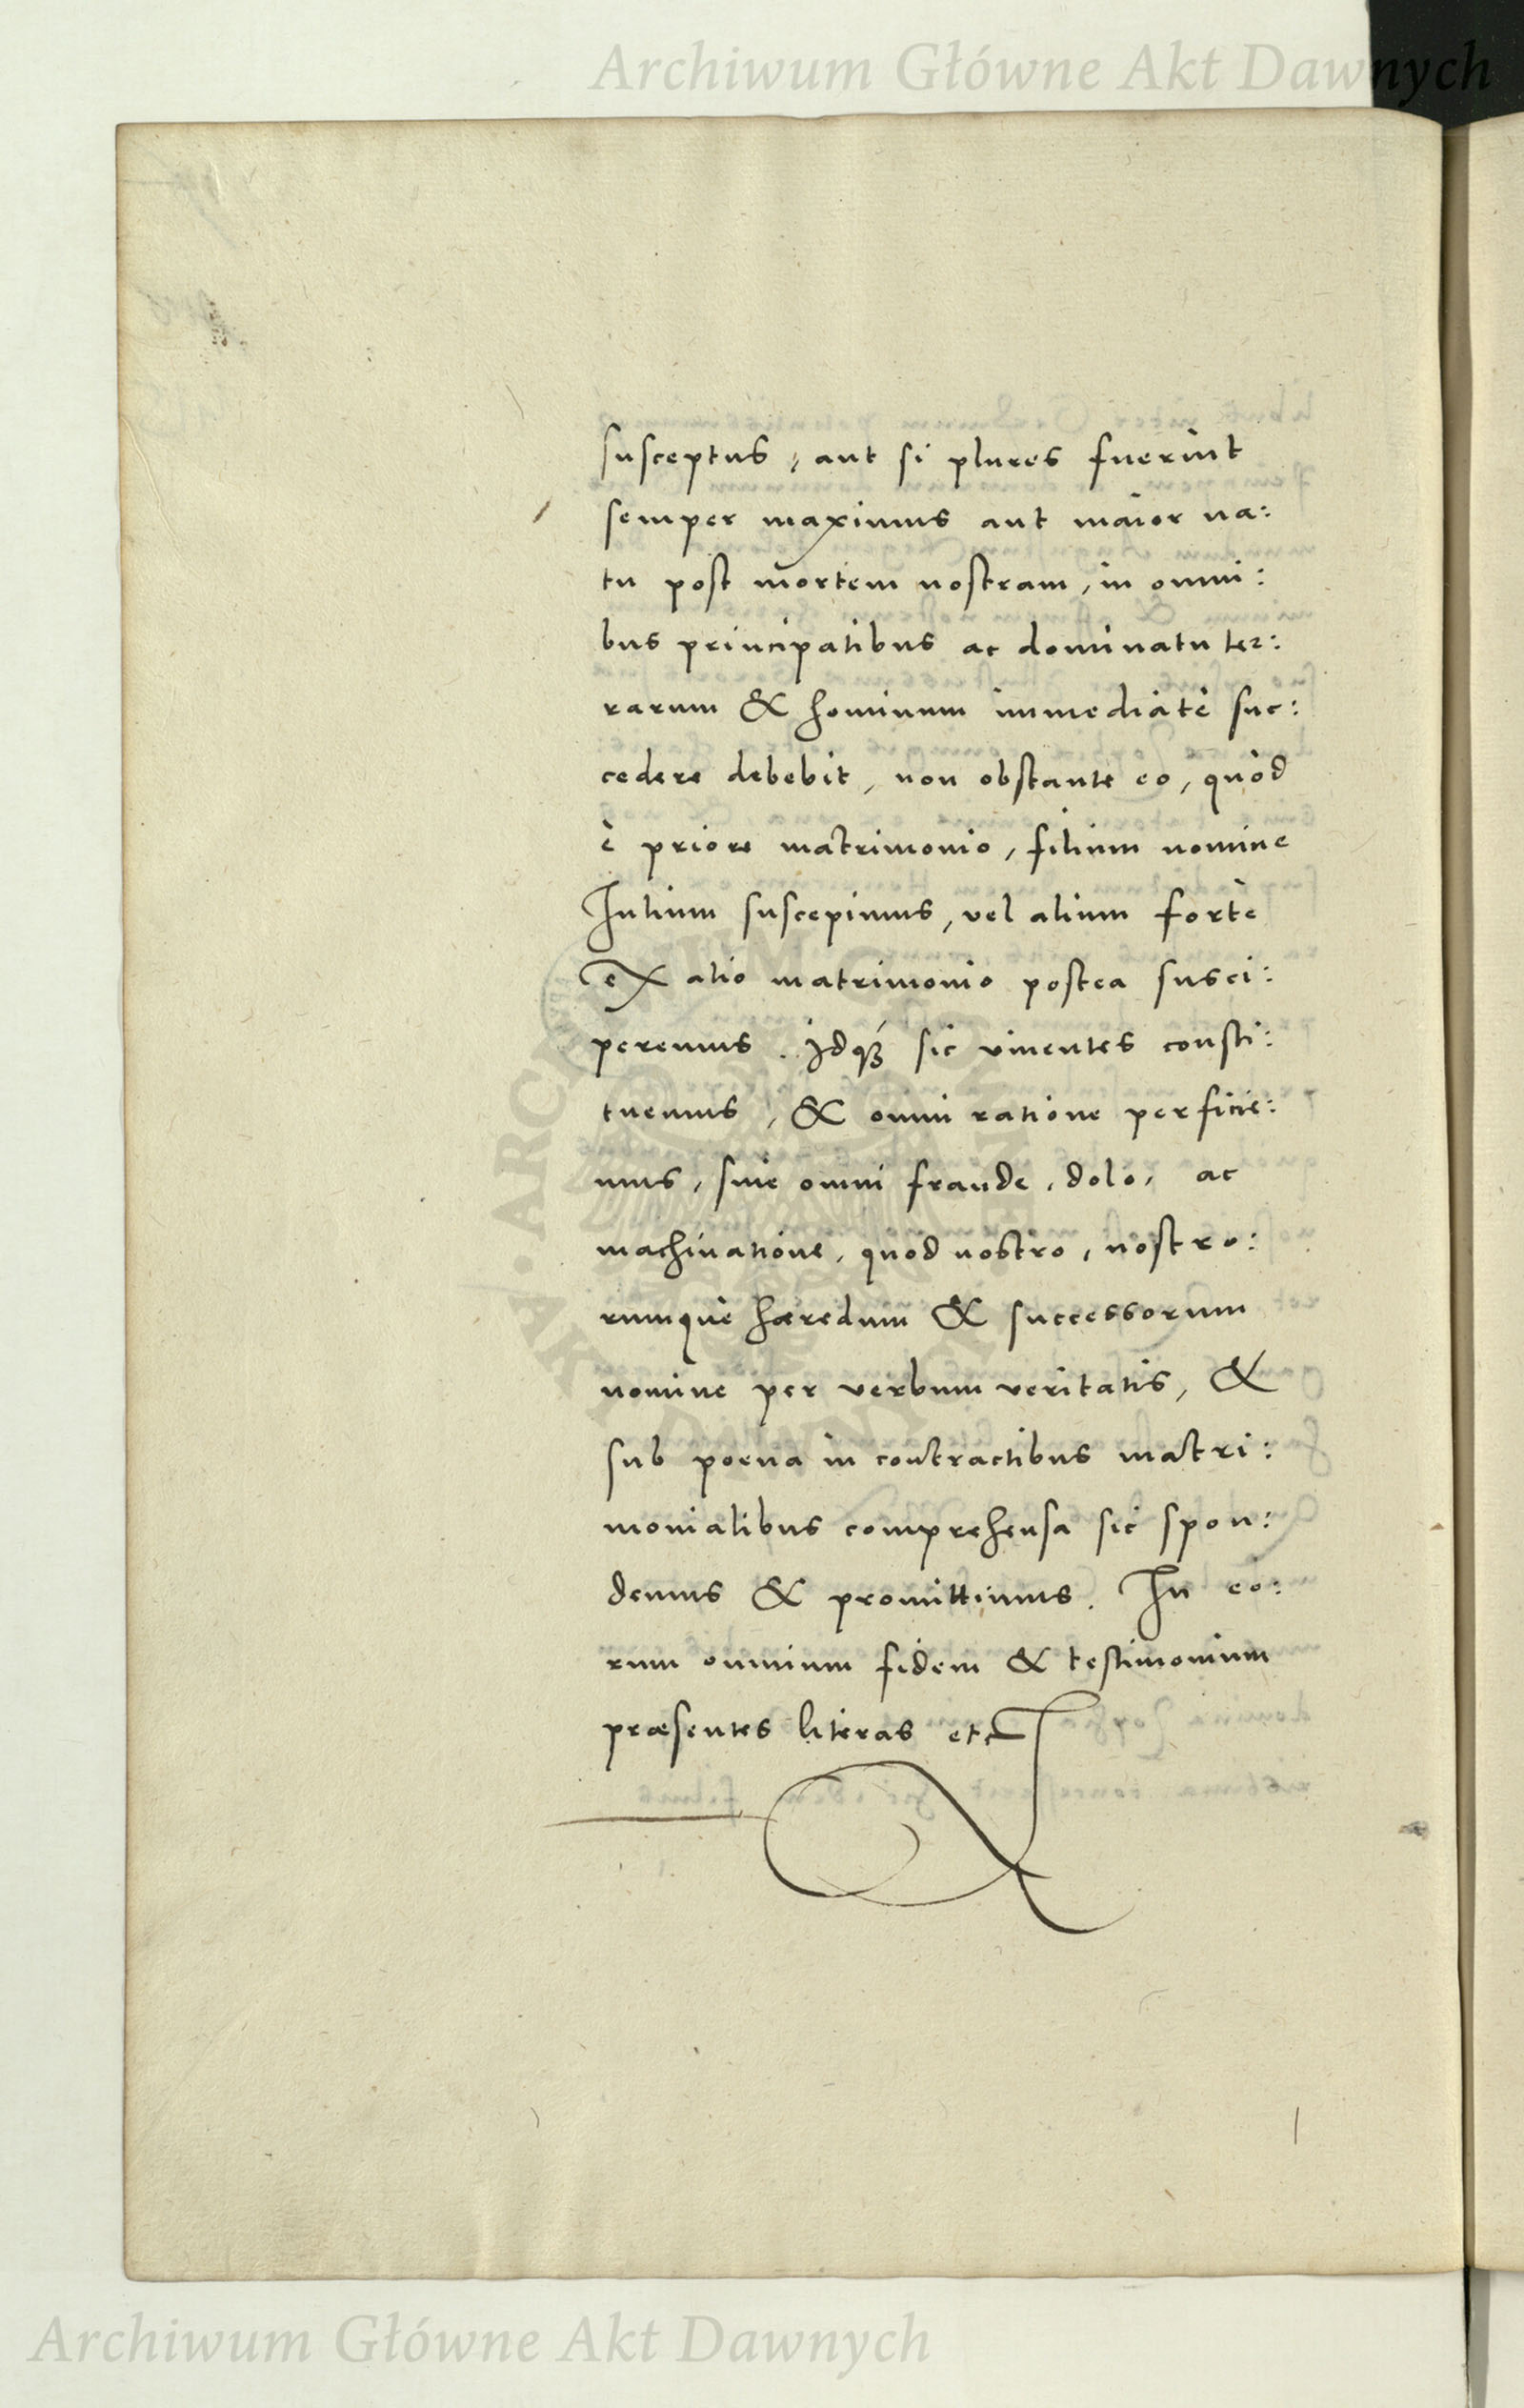 Archiwum Główne Akt Dawnych
susceptus, aut si plures fuerint
semper maximus aut maior na:
tu post mortem nostram, in omni:
bus principatibus ac dominatu ter:
rarum & hominum immediatè suc:
cedere debebit, non obstante eo, quòd
è priore matrimonio, filium nomine
Iulium suscepimus, vel alium fortè
ex alio matrimonio postea susci:
peremus. Idq3 sic viuentes consti:
tuemus, & omni ratione perficie:
mus, sine omni fraude, dolo, ac
machinatione, quod nostro, nostro:
rumque hæredum & successorum
nomine per verbum veritatis, &
sub poena in contractibus matri:
monialibus comprehensa sic spon:
demus & promittimus. In eo:
rum omnium fidem & testimonium
præsentes literas etc
Archiwum Główne Akt Dawnych